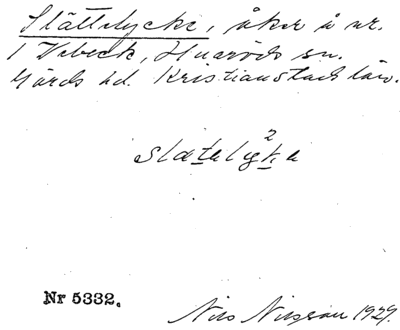 Slättelycke, åker å nr.
1 Vebeck, Huaröds sn.
Gärds hd. Kristianstads län.
slatalyka
2
Nr 5332.
Nils Nilsson 1929.